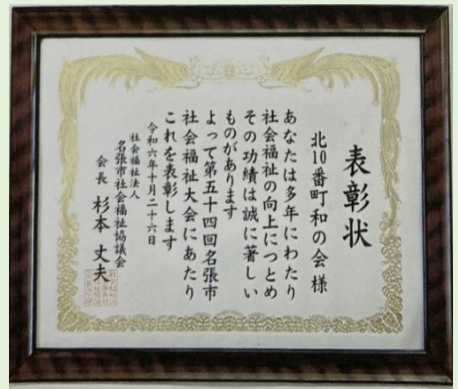 表彰状
北10番町和の会 様
あなたは多年にわたり
社会福祉の向上につとめ
その功績は誠に著しい
ものがあります
よって第五十四回名張市
社会福祉大会にあたり
これを表彰します
令和六年十月二十六日
社会福祉法人
名張市社会福祉協議会
会長 杉本丈夫